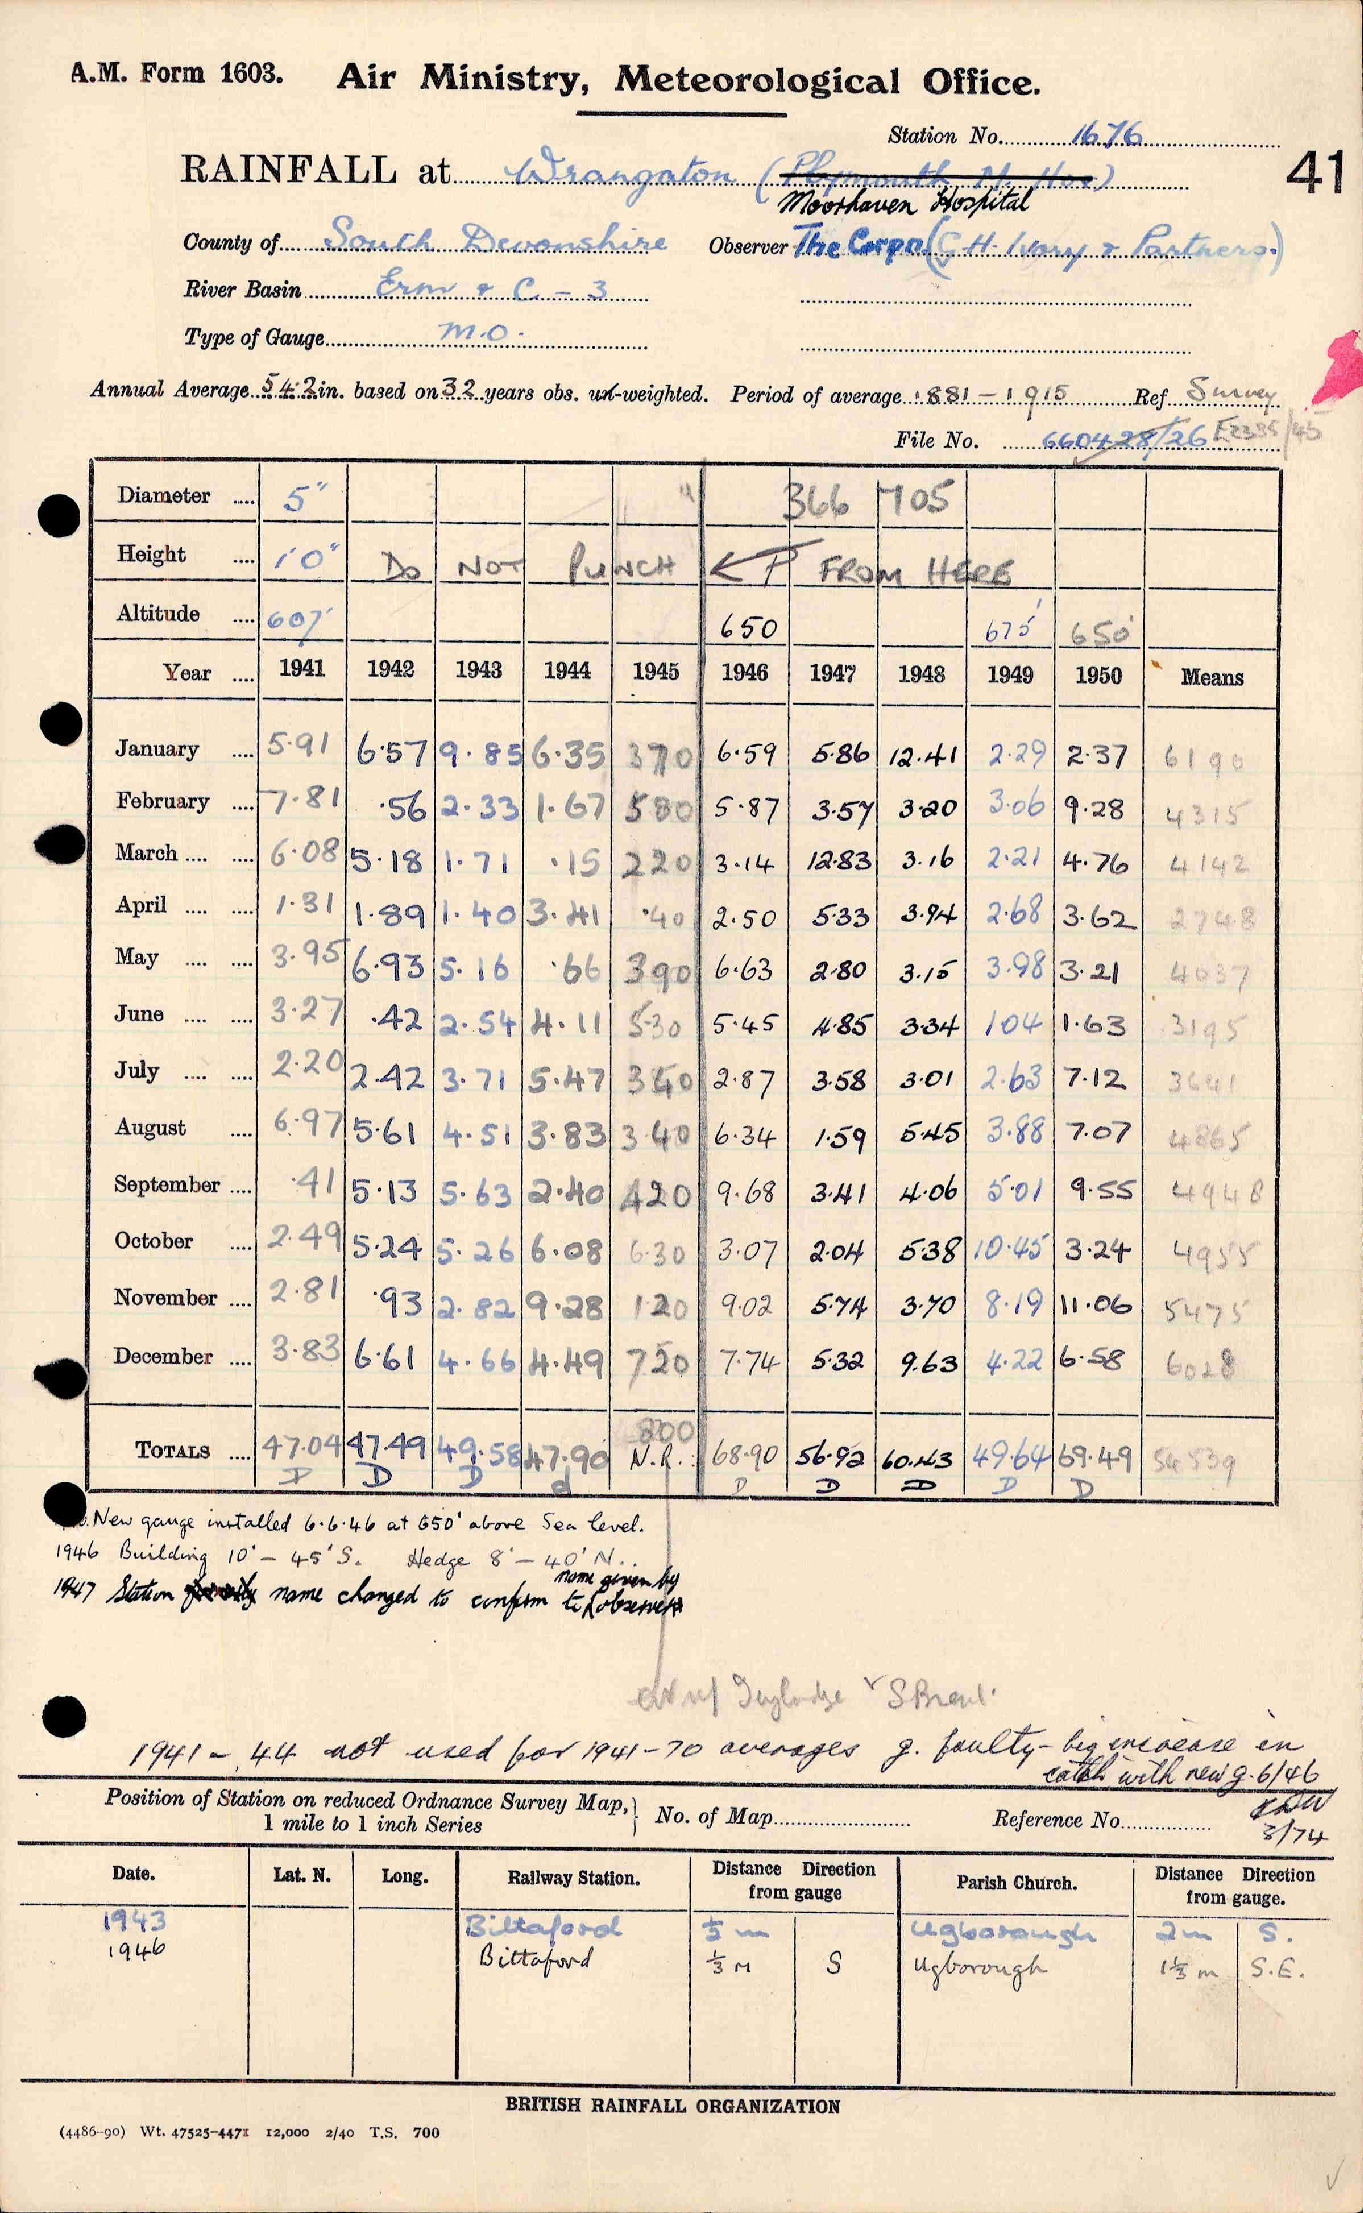 A.M. Form 1603. Air Ministry, Meteorological Office.
Station No. 1676
41
RAINFALL at Wrangaton (Plymouth M. Hos)
Moorhaven Hospital
County of South Devonshire Observer The Corpn. (G.H. Ivory & Partners.)
River Basin Erm & C - 3
Type of Gauge M.O.
Annual Average 54.2 in. based on 32 years obs. un-weighted. Period of average 1881 - 1915 Ref Survey
File No. 660428/26 E2335/45
Diameter .... 5" 366 705
Height .... 1'0" Do NOT PUNCH ← P FROM HERE
Altitude .... 607' 650 675' 650'
Year .... 1941 1942 1943 1944 1945 1946 1947 1948 1949 1950 Means
January .... 5.91 6.57 9.85 6.35 370 6.59 5.86 12.41 2.29 2.37 6190
February .... 7.81 .56 2.33 1.67 580 5.87 3.57 3.20 3.06 9.28 4315
March .... .... 6.08 5.18 1.71 .15 220 3.14 12.83 3.16 2.21 4.76 4142
April .... .... 1.31 1.89 1.40 3.41 .40 2.50 5.33 3.94 2.68 3.62 2748
May .... .... 3.95 6.93 5.16 .66 390 6.63 2.80 3.15 3.98 3.21 4037
June .... .... 3.27 .42 2.54 4.11 5.30 5.45 4.85 3.34 1.04 1.63 3195
July .... .... 2.20 2.42 3.71 5.47 340 2.87 3.58 3.01 2.63 7.12 3641
August .... 6.97 5.61 4.51 3.83 3.40 6.34 1.59 5.45 3.88 7.07 4865
September .... .41 5.13 5.63 2.40 420 9.68 3.41 4.06 5.01 9.55 4948
October .... 2.49 5.24 5.26 6.08 6.30 3.07 2.04 5.38 10.45 3.24 4955
November .... 2.81 .93 2.82 9.28 120 9.02 5.74 3.70 8.19 11.06 5475
December .... 3.83 6.61 4.66 4.49 720 7.74 5.32 9.63 4.22 6.58 6028
800
TOTALS .... 47.04 47.49 49.58 47.90 N.R. 68.90 56.92 60.43 49.64 69.49 54539
D D D d D D D D D
New gauge installed 6.6.46 at 650' above Sea level.
1946 Building 10' - 45' S. Hedge 8' - 40' N.
1947 Station name changed to confirm to name given by observer
S Brent
1941 - 44 not used for 1941-70 averages g. faulty - big increase in
catch with new g. 6/46
3/74
Position of Station on reduced Ordnance Survey Map, } No. of Map Reference No.
1 mile to 1 inch Series
Date. Lat. N. Long. Railway Station. Distance Direction from gauge Parish Church. Distance Direction from gauge.
1943 Bittaford ⅓ m Ugborough 2m S.
1946 Bittaford ⅓ M S Ugborough 1⅓ m S.E.
BRITISH RAINFALL ORGANIZATION
(4486-90) Wt. 47525-4471 12,000 2/40 T.S. 700